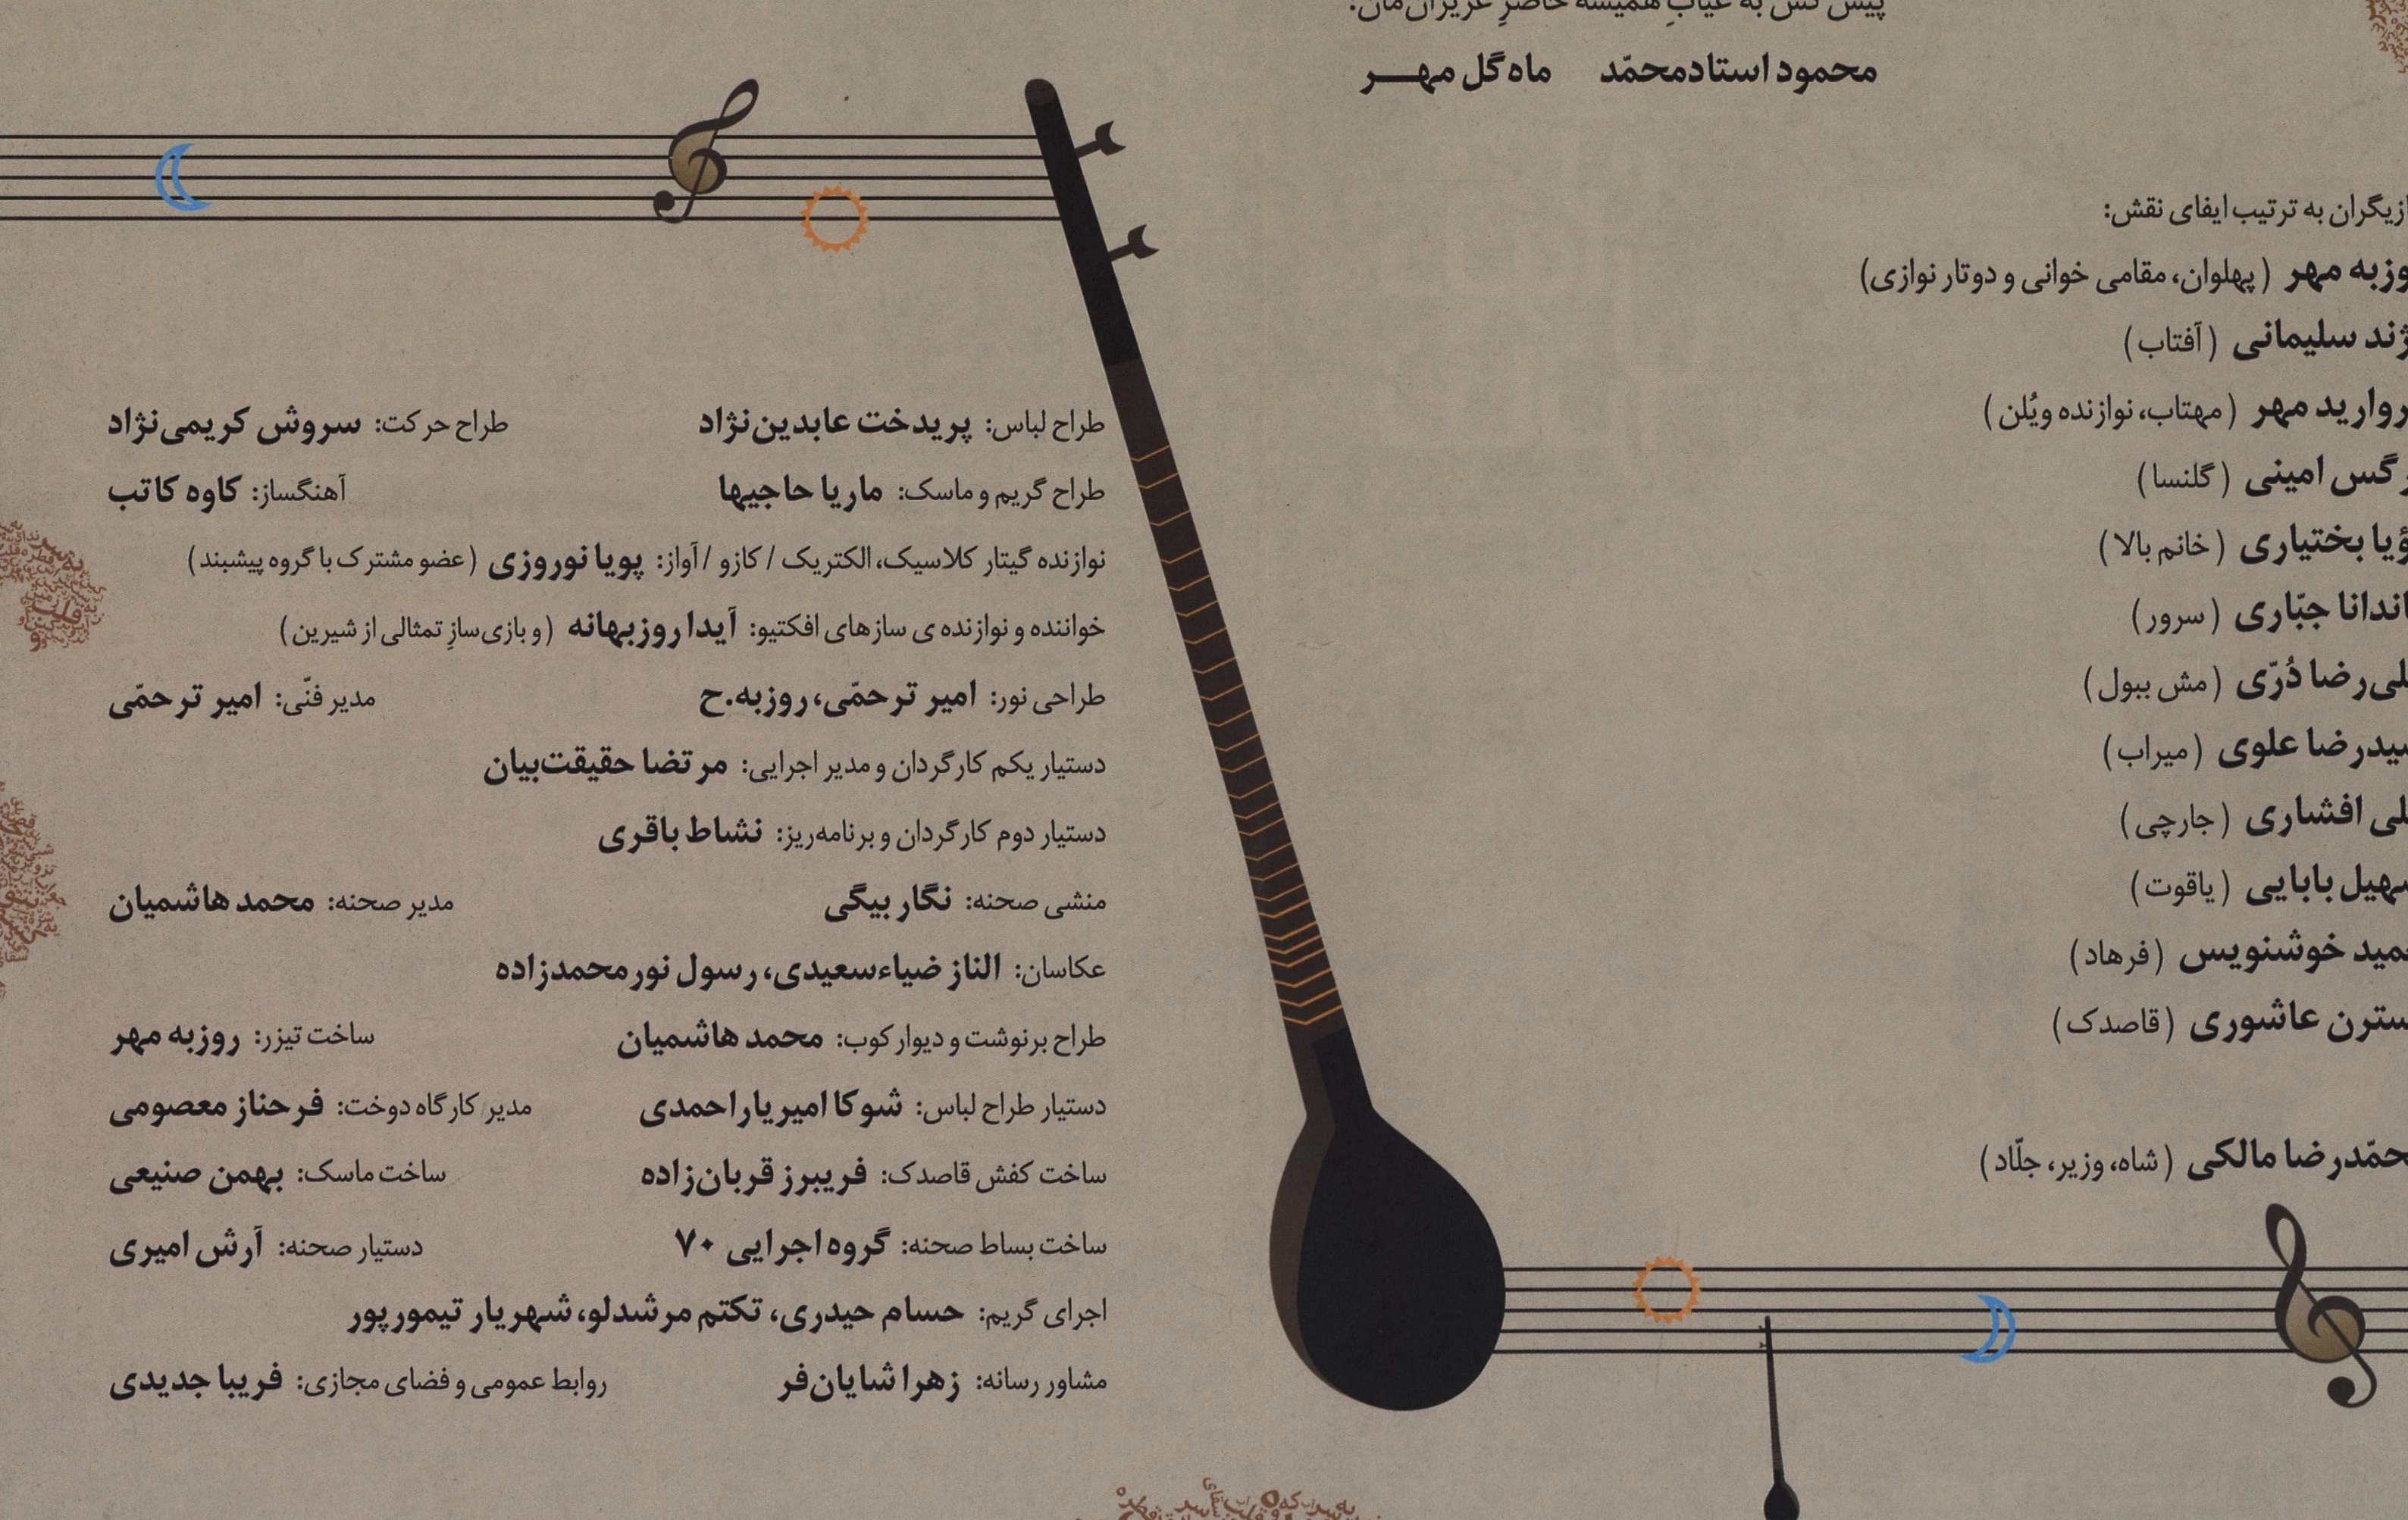 محمود استادمحمّد ماه گل مهر
به ترتیب ایفای نقش:
مهر (پهلوان، مقامی خوانی و دوتار نوازی)
سلیمانی (آفتاب)
مهر (مهتاب، نوازنده ویُلن)
امینی (گلنسا)
بختیاری (خانم بالا)
جبّاری (سرور)
دُرّی (مش ببول)
علوی (میراب)
افشاری (جارچی)
بابایی (یاقوت)
خوشنویس (فرهاد)
عاشوری (قاصدک)
مالکی (شاه، وزیر، جلّاد)
طراح لباس: پریدخت عابدین‌نژاد طراح حرکت: سروش کریمی‌نژاد
طراح گریم و ماسک: ماریا حاجیها آهنگساز: کاوه کاتب
نوازنده گیتار کلاسیک، الکتریک / کازو / آواز: پویا نوروزی (عضو مشترک با گروه پیشبند)
خواننده و نوازنده ی سازهای افکتیو: آیدا روزبهانه (و بازی‌سازِ تمثالی از شیرین)
طراحی نور: امیر ترحمّی، روزبه.ح مدیر فنّی: امیر ترحمّی
دستیار یکم کارگردان و مدیر اجرایی: مرتضا حقیقت‌بیان
دستیار دوم کارگردان و برنامه‌ریز: نشاط باقری
منشی صحنه: نگار بیگی مدیر صحنه: محمد هاشمیان
عکاسان: الناز ضیاءسعیدی، رسول نورمحمدزاده
طراح برنوشت و دیوارکوب: محمد هاشمیان ساخت تیزر: روزبه مهر
دستیار طراح لباس: شوکا امیریاراحمدی مدیر کارگاه دوخت: فرحناز معصومی
ساخت کفش قاصدک: فریبرز قربان‌زاده ساخت ماسک: بهمن صنیعی
ساخت بساط صحنه: گروه اجرایی ۷۰ دستیار صحنه: آرش امیری
اجرای گریم: حسام حیدری، تکتم مرشدلو، شهریار تیمورپور
مشاور رسانه: زهرا شایان‌فر روابط عمومی و فضای مجازی: فریبا جدیدی